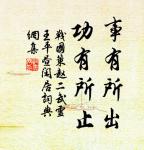 事有所出
功有所止
戰國策趙二武靈
王平晝閒居詞典
網集